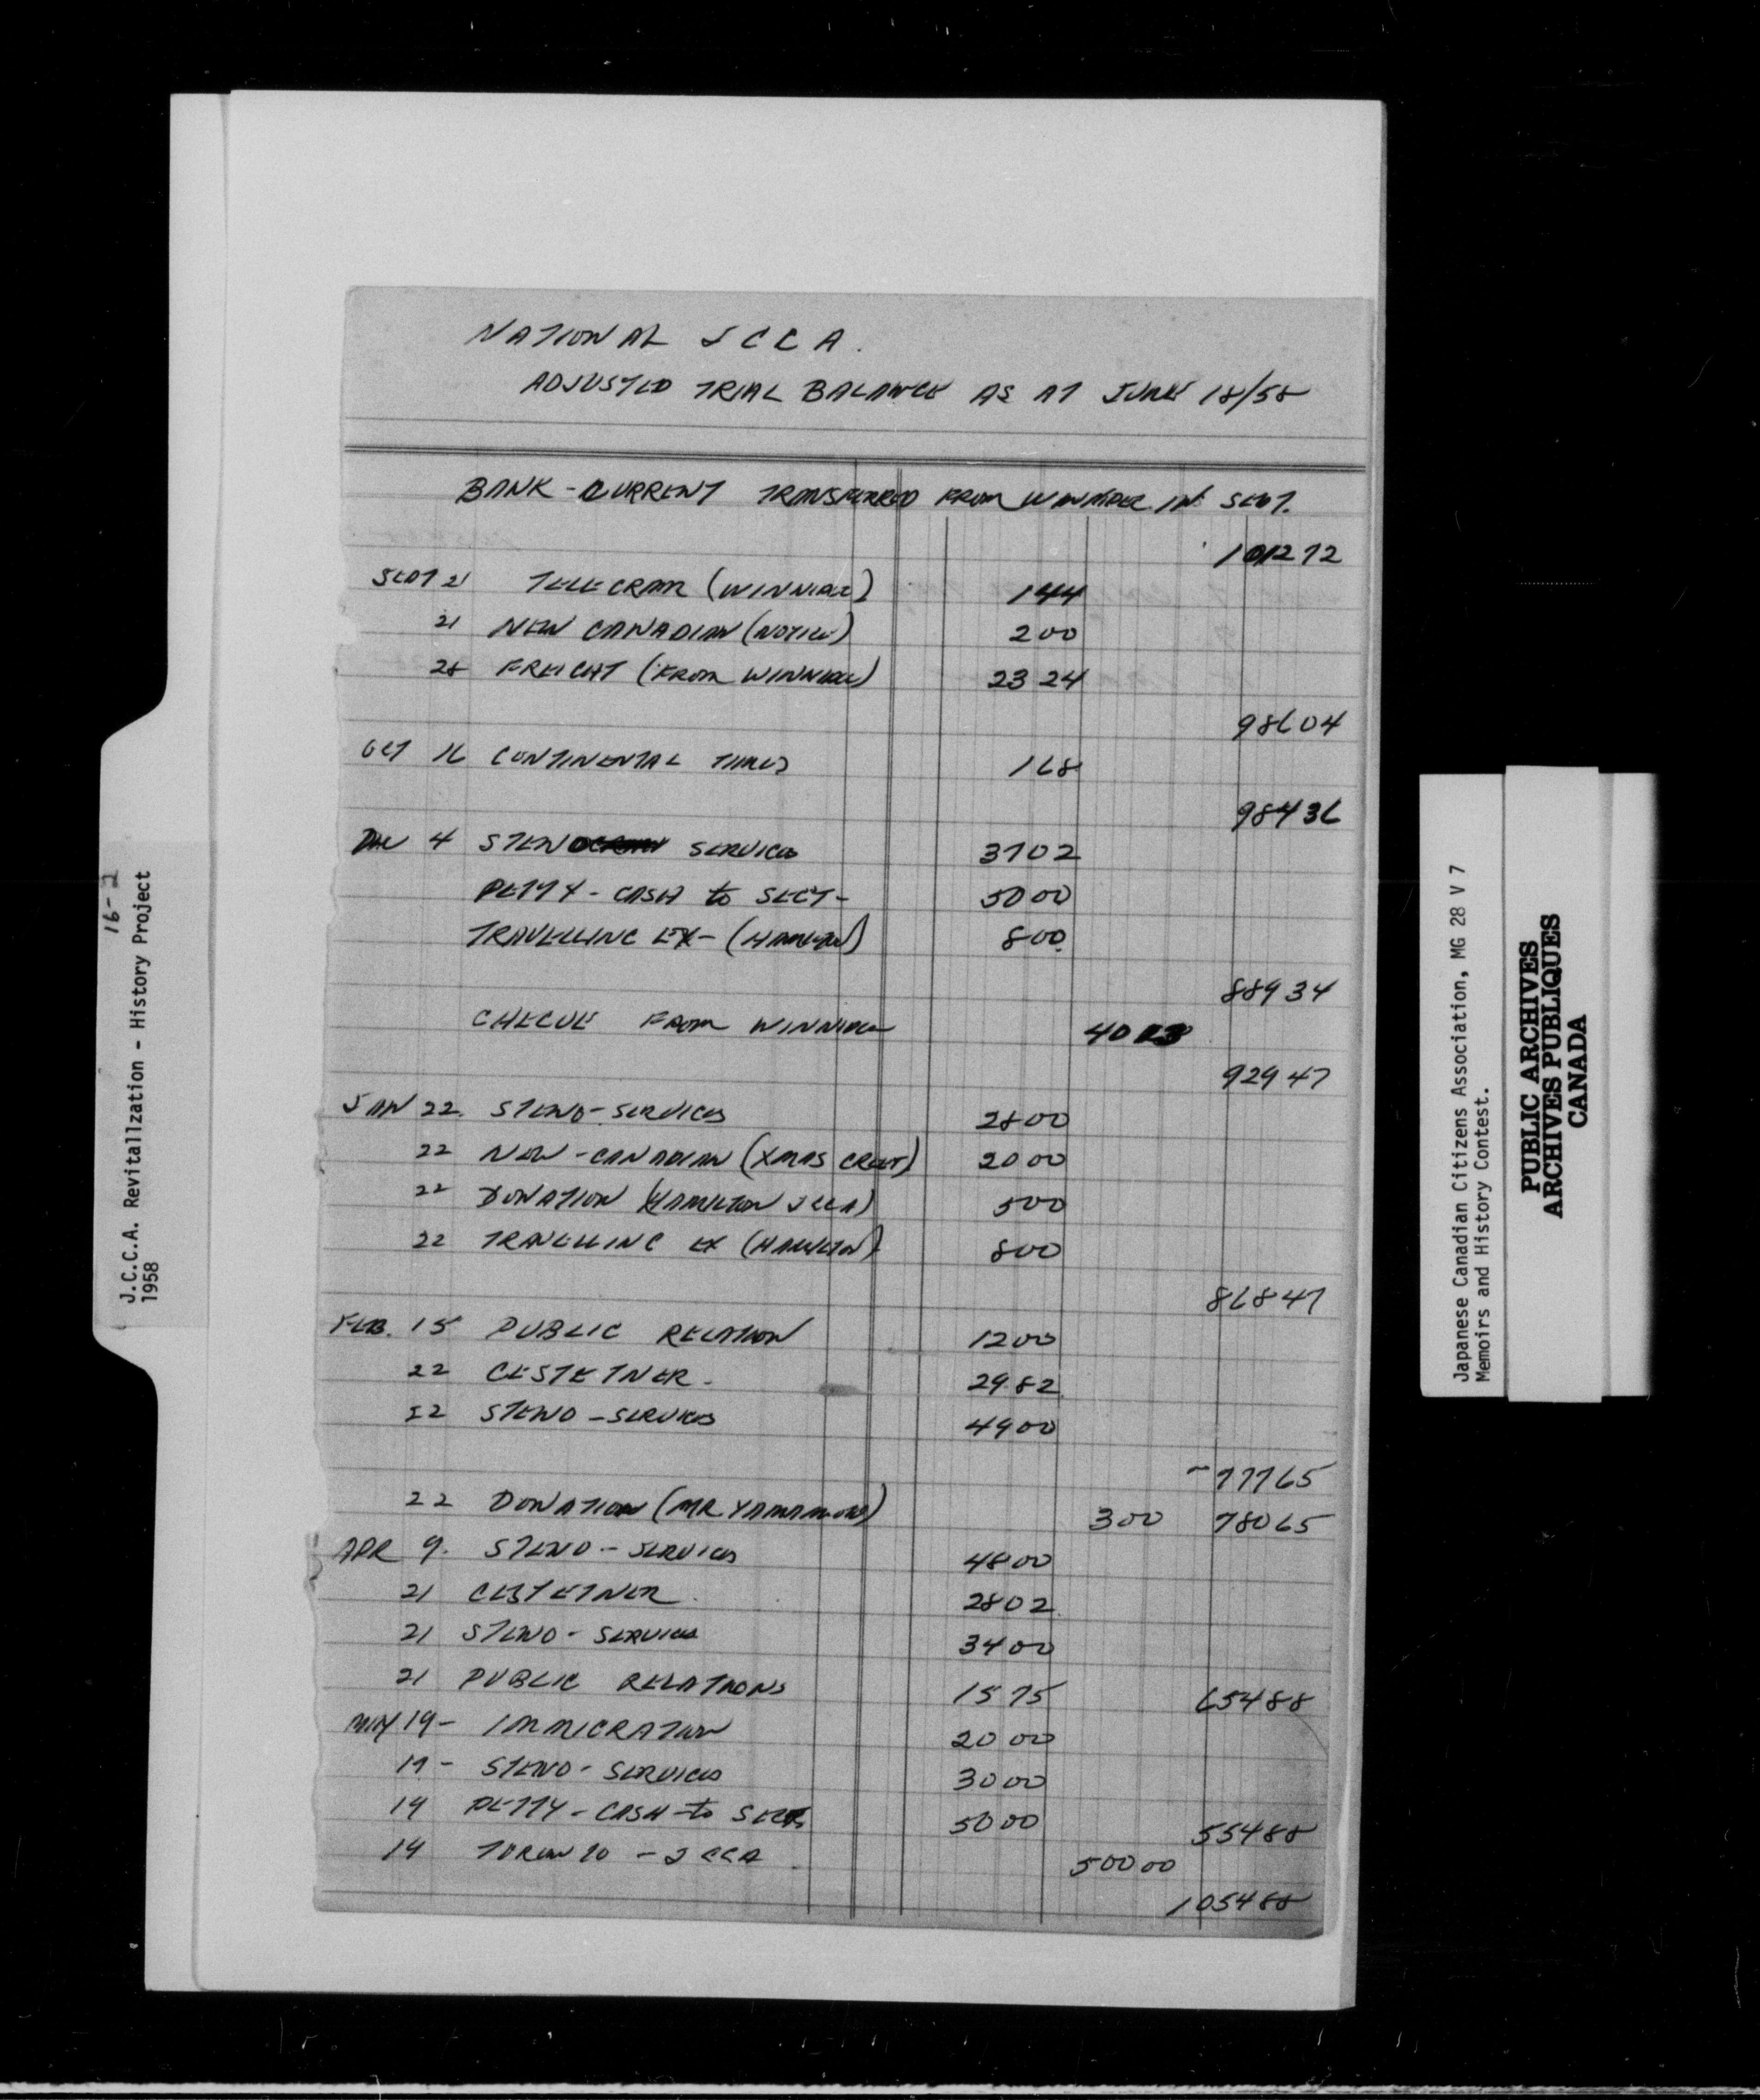 NATIONAL JCCA.
ADJUSTED TRIAL BALANCE AS AT JUNE 18/58
BANK - CURRENT TRANSFERRED FROM WINNIPEG IN SEPT.
1012 72
SEPT 21 TELEGRAM (WINNIPEG) 1 44
21 NEW CANADIAN (NOTICE) 2 00
28 FREIGHT (FROM WINNIPEG) 23 24
986 04
OCT 16 CONTINENTAL TIMES 1 68
984 36
DEC 4 STENO SERVICES 37 02
PETTY - CASH to SECT - 50 00
TRAVELLING EX - (HAMILTON) 8 00
889 34
CHEQUE FROM WINNIPEG 40 13
929 47
JAN 22. STENO - SERVICES 28 00
22 NEW - CANADIAN (XMAS GREET) 20 00
22 DONATION (HAMILTON JCCA) 5 00
22 TRAVELLING EX (HAMILTON) 8 00
868 47
FEB. 15 PUBLIC RELATION 12 00
22 GESTETNER - 29 82
22 STENO - SERVICES 49 00
777 65
22 DONATION (MR YAMAMOTO) 3 00 780 65
APR 9. STENO - SERVICES 48 00
21 GESTETNER 28 02
21 STENO - SERVICES 34 00
21 PUBLIC RELATIONS 15 75 654 88
MAY 19 - IMMIGRATION 20 00
19 - STENO - SERVICES 30 00
19 PETTY - CASH - to SECT 50 00 554 88
19 TORONTO - JCCA 500 00
1054 88
16-2
J.C.C.A. Revitalization - History Project
1958
Japanese Canadian Citizens Association, MG 28 V 7
Memoirs and History Contest.
PUBLIC ARCHIVES
ARCHIVES PUBLIQUES
CANADA